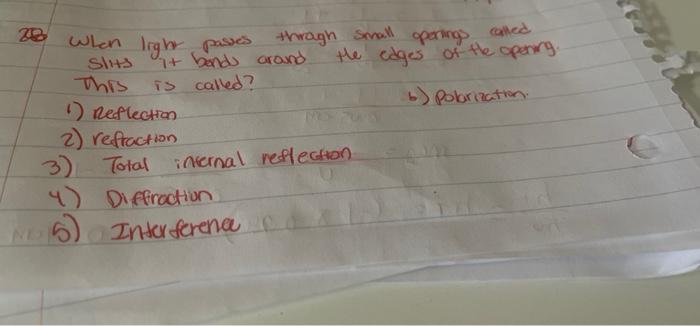 28 When light passes through small openings called
slits it bends around the edges of the opening.
This is called?
1) Reflection
6) Polarization.
2) refraction
3) Total internal reflection
4) Diffraction
5) Interference